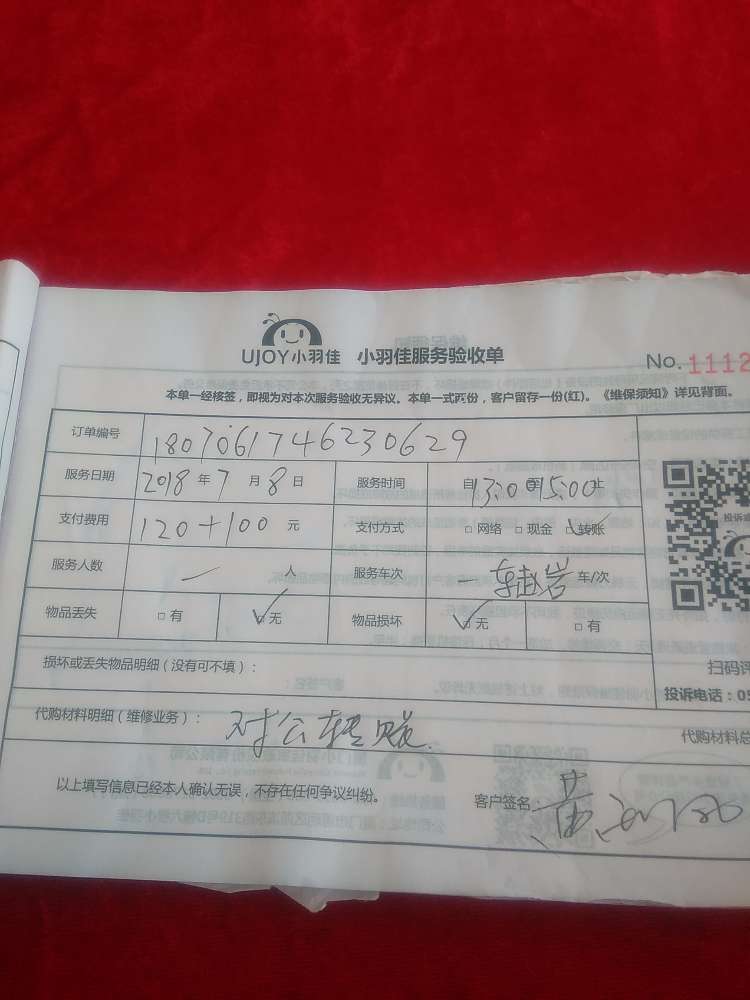 UJOY小羽佳 小羽佳服务验收单
No. 1112
本单一经核签，即视为对本次服务验收无异议。本单一式两份，客户留存一份(红)。《维保须知》详见背面。
订单编号 1807061746230629
服务日期 2018年7月8日 服务时间 自13:00至15:00止
支付费用 120+100 元 支付方式 □网络 □现金 ☑转账
服务人数 一 人 服务车次 一 车/次
物品丢失 □有 ☑无 物品损坏 ☑无 □有
损坏或丢失物品明细（没有可不填）：
扫码评
投诉电话：05
代购材料明细（维修业务）： 对公转账
代购材料总
以上填写信息已经本人确认无误，不存在任何争议纠纷。 客户签名： 黄
投诉或